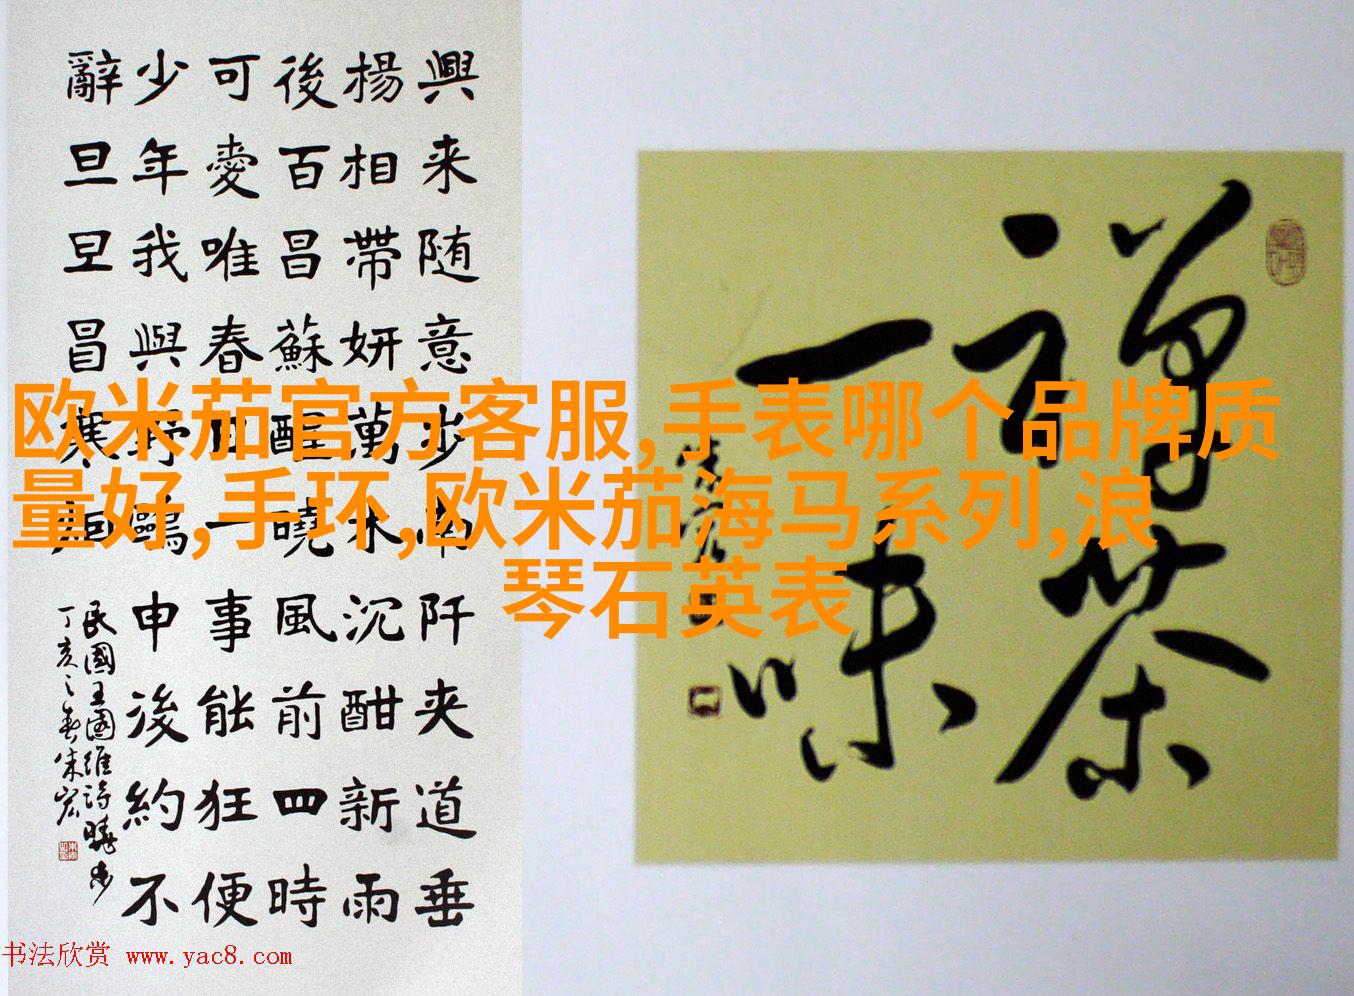 興来随意步南阡夾道垂
楊相帶妍萬木沉酣新雨
後百昌蘇醒曉風前四時
可愛唯春日一事能狂便
少年我與野鷗申後約不
辭旦旦冒寒烟
民國王國維詩曉步
丁亥之春朱宏
禪茶
一味
欧米茄官方客服,手表哪个品牌质
量好,手环,欧米茄海马系列,浪
琴石英表
书法欣赏 www.yac8.com